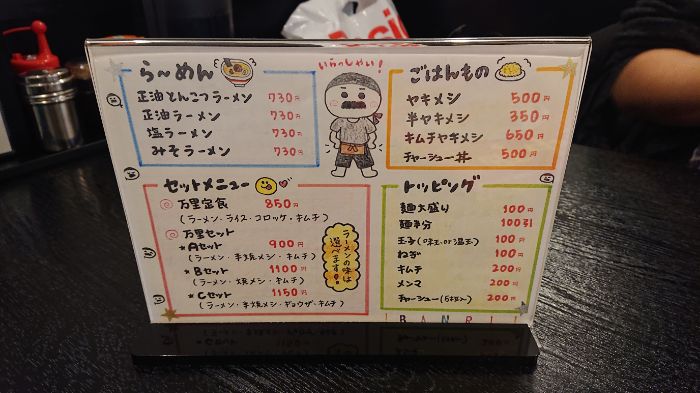 らーめん
正油とんこつラーメン 730円
正油ラーメン 730円
塩ラーメン 730円
みそラーメン 730円
いらっしゃい!
ごはんもの
ヤキメシ 500円
半ヤキメシ 350円
キムチヤキメシ 650円
チャーシュー丼 500円
セットメニュー
万里定食 850円
(ラーメン・ライス・コロッケ・キムチ)
万里セット
★Aセット 900円
(ラーメン・半焼メシ・キムチ)
★Bセット 1100円
(ラーメン・焼メシ・キムチ)
★Cセット 1150円
(ラーメン・半焼メシ・ギョウザ・キムチ)
ラーメンの味は
選べます!
トッピング
麺大盛り 100円
麺半分 100円引
玉子(味玉or温玉) 100円
ねぎ 100円
キムチ 200円
メンマ 200円
チャーシュー(5枚入) 200円
BANRI